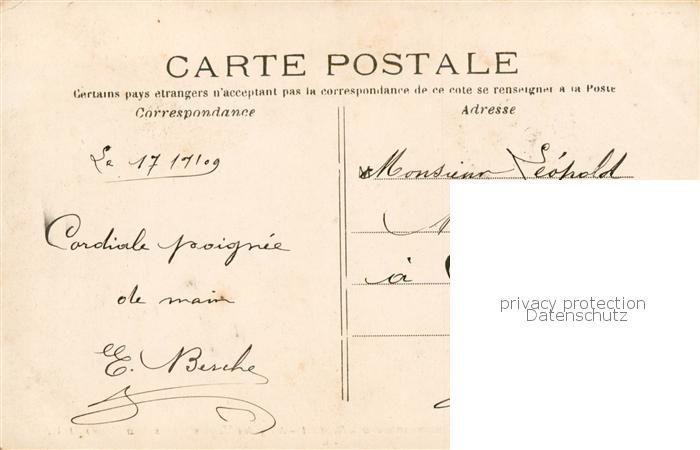 CARTE POSTALE
Certains pays étrangers n'acceptant pas la correspondance de ce coté se renseigner à la Poste
Correspondance
Adresse
Le 17
Monsieur Léopold
à
Cordiale poignée
de main
E. Besche
privacy protection
Datenschutz